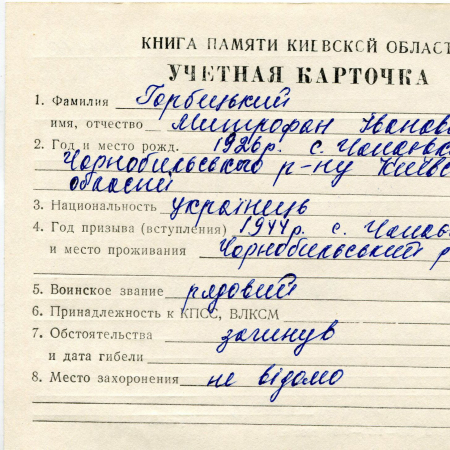 КНИГА ПАМЯТИ КИЕВСКОЙ ОБЛАСТ
УЧЕТНАЯ КАРТОЧКА
1. Фамилия Горбицький
имя, отчество Митрофан Іванов
2. Год и место рожд. 1926р. с.
Чорнобильського р-ну Київс
області
3. Национальность українець
4. Год призыва (вступления) 1944р. с.
и место проживания Чорнобильський р
5. Воинское звание рядовий
6. Принадлежность к КПСС, ВЛКСМ
7. Обстоятельства загинув
и дата гибели
8. Место захоронения не відомо